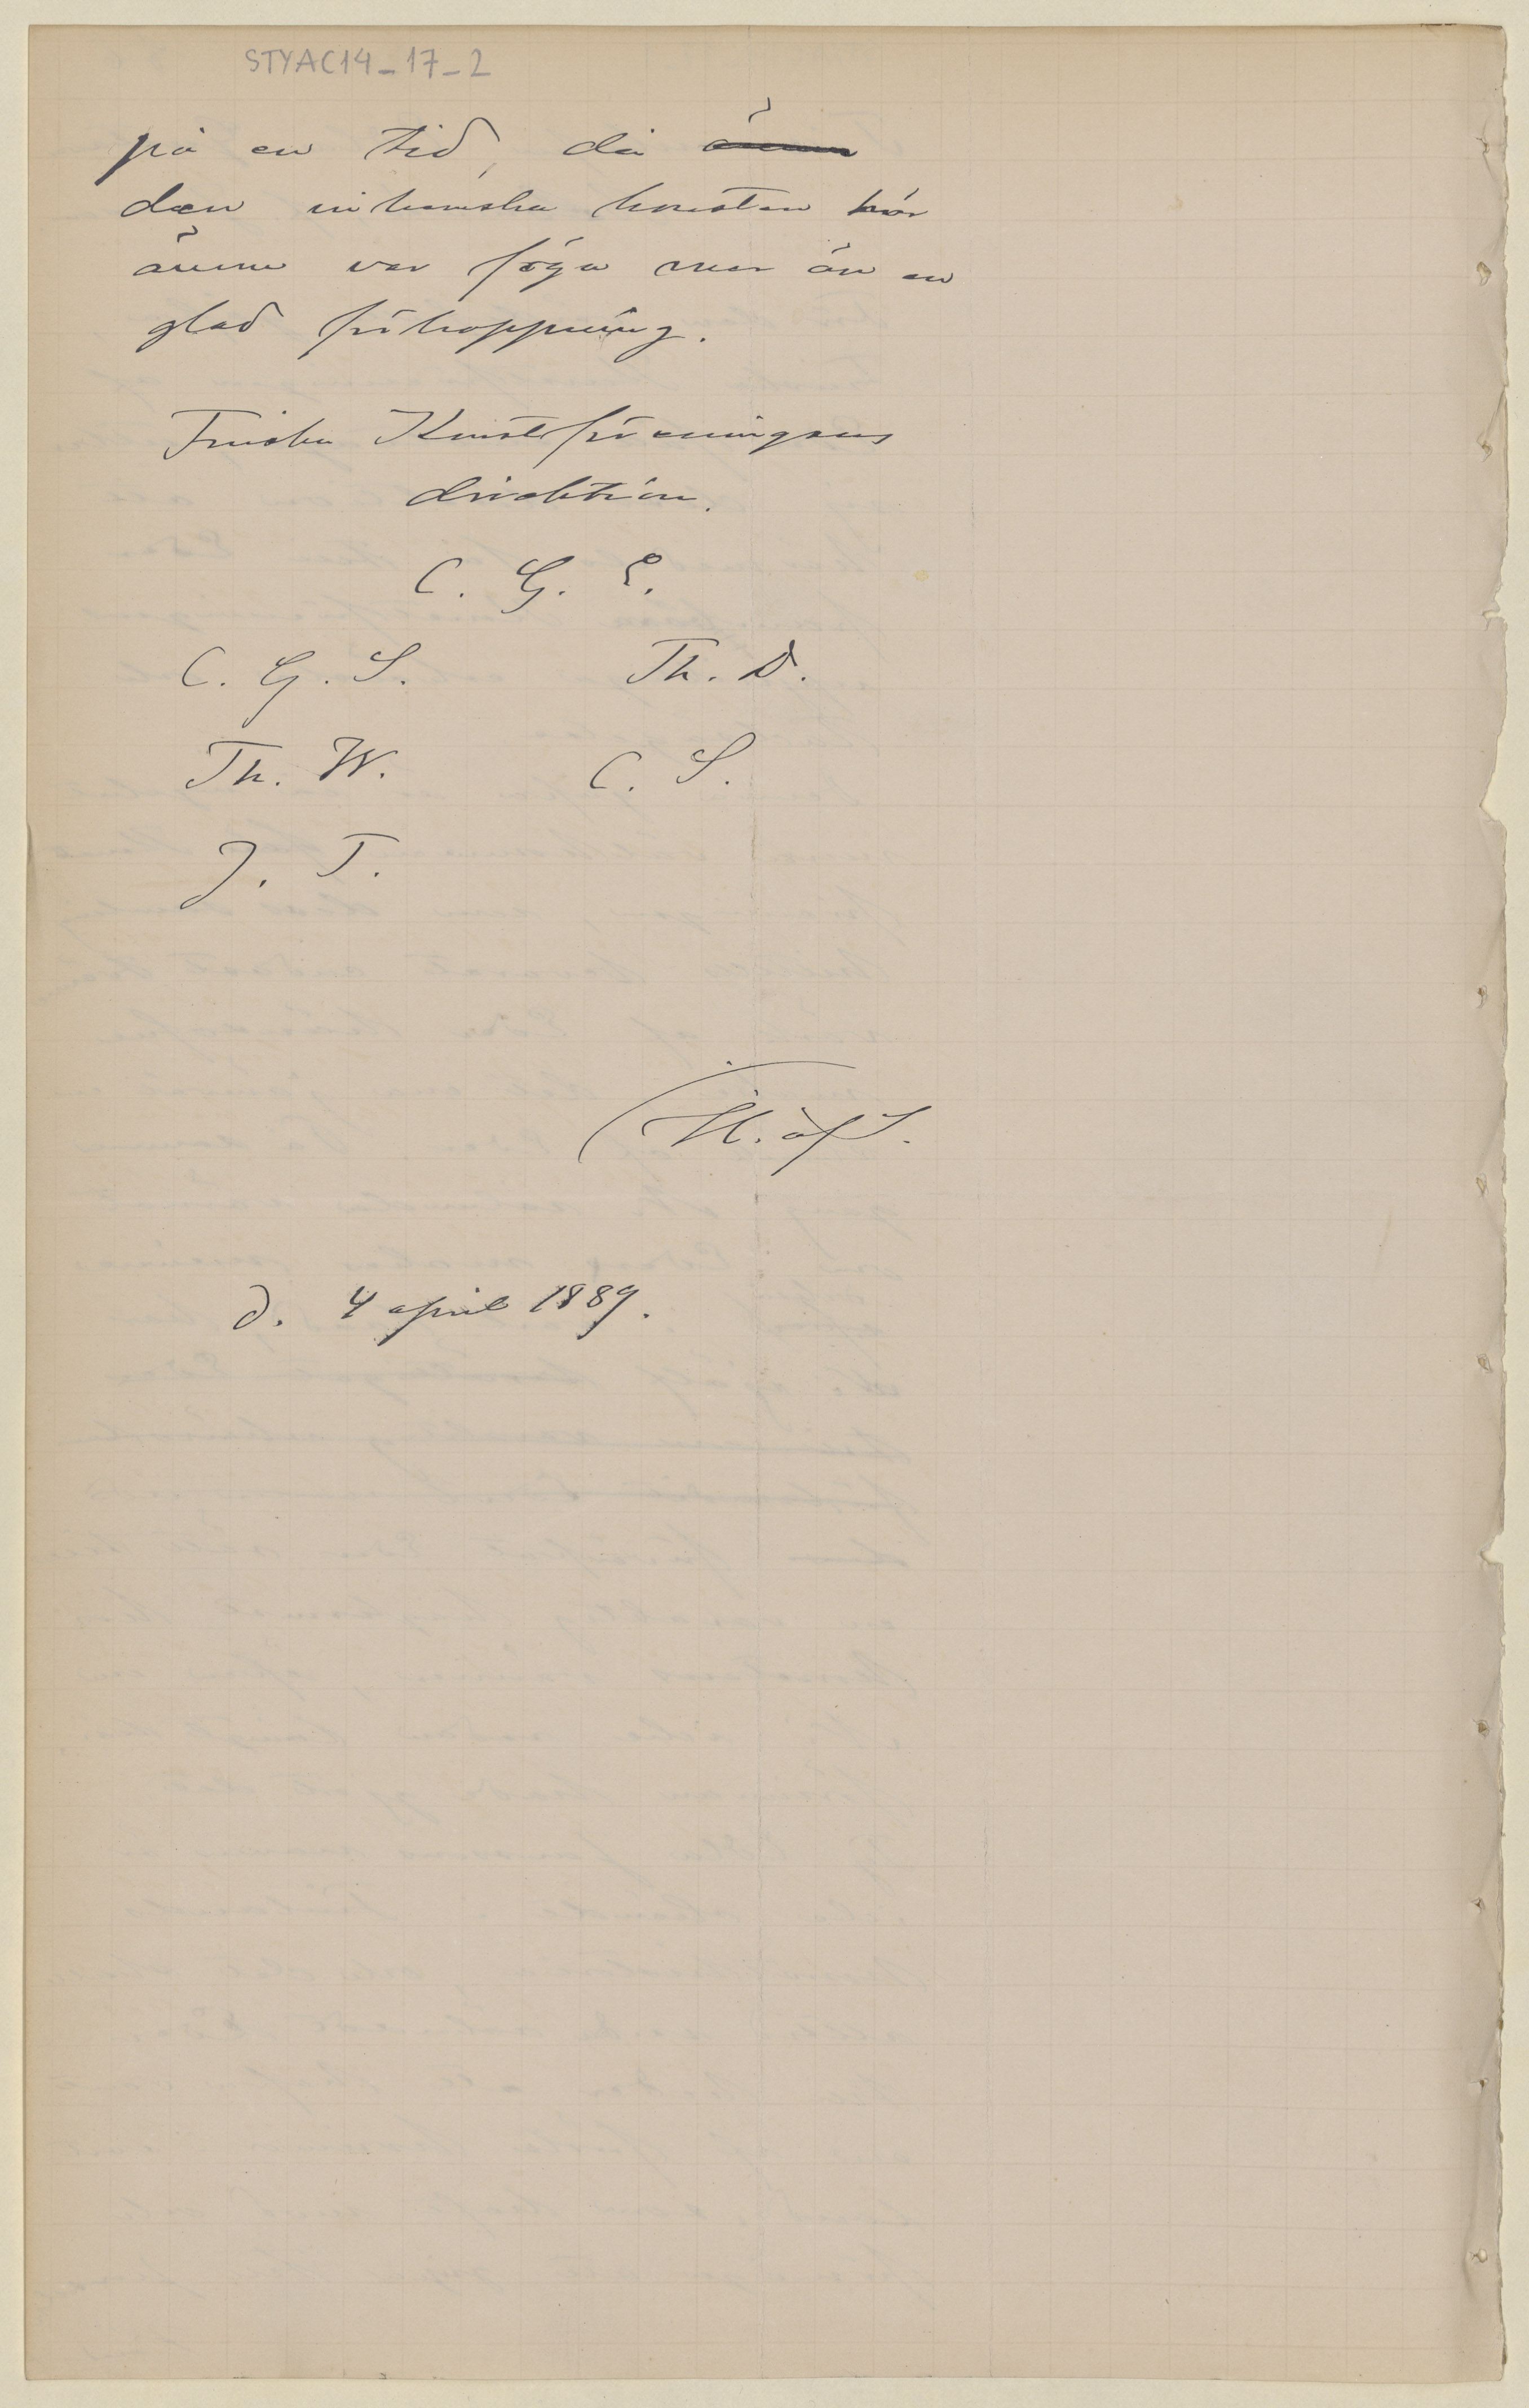 STYAC14_17_2
på en tid, då ännu
den inhemska konsten här
ännu var föga mer än en
glad förhoppning.
Finska Konstföreningens
direktion.
C. G. E.
C. G. S. Th. D.
Th. W. C. S.
J. T.
H. af S.
d. 4 april 1889.